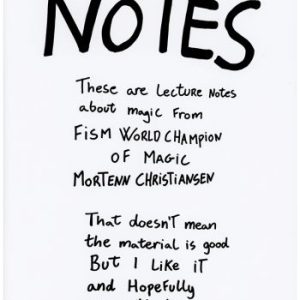 NOTES
These are Lecture Notes
about magic from
FISM WORLD CHAMPION
OF MAGIC
MORTENN CHRISTIANSEN
That doesn't mean
the material is good
But I Like iT
and Hopefully